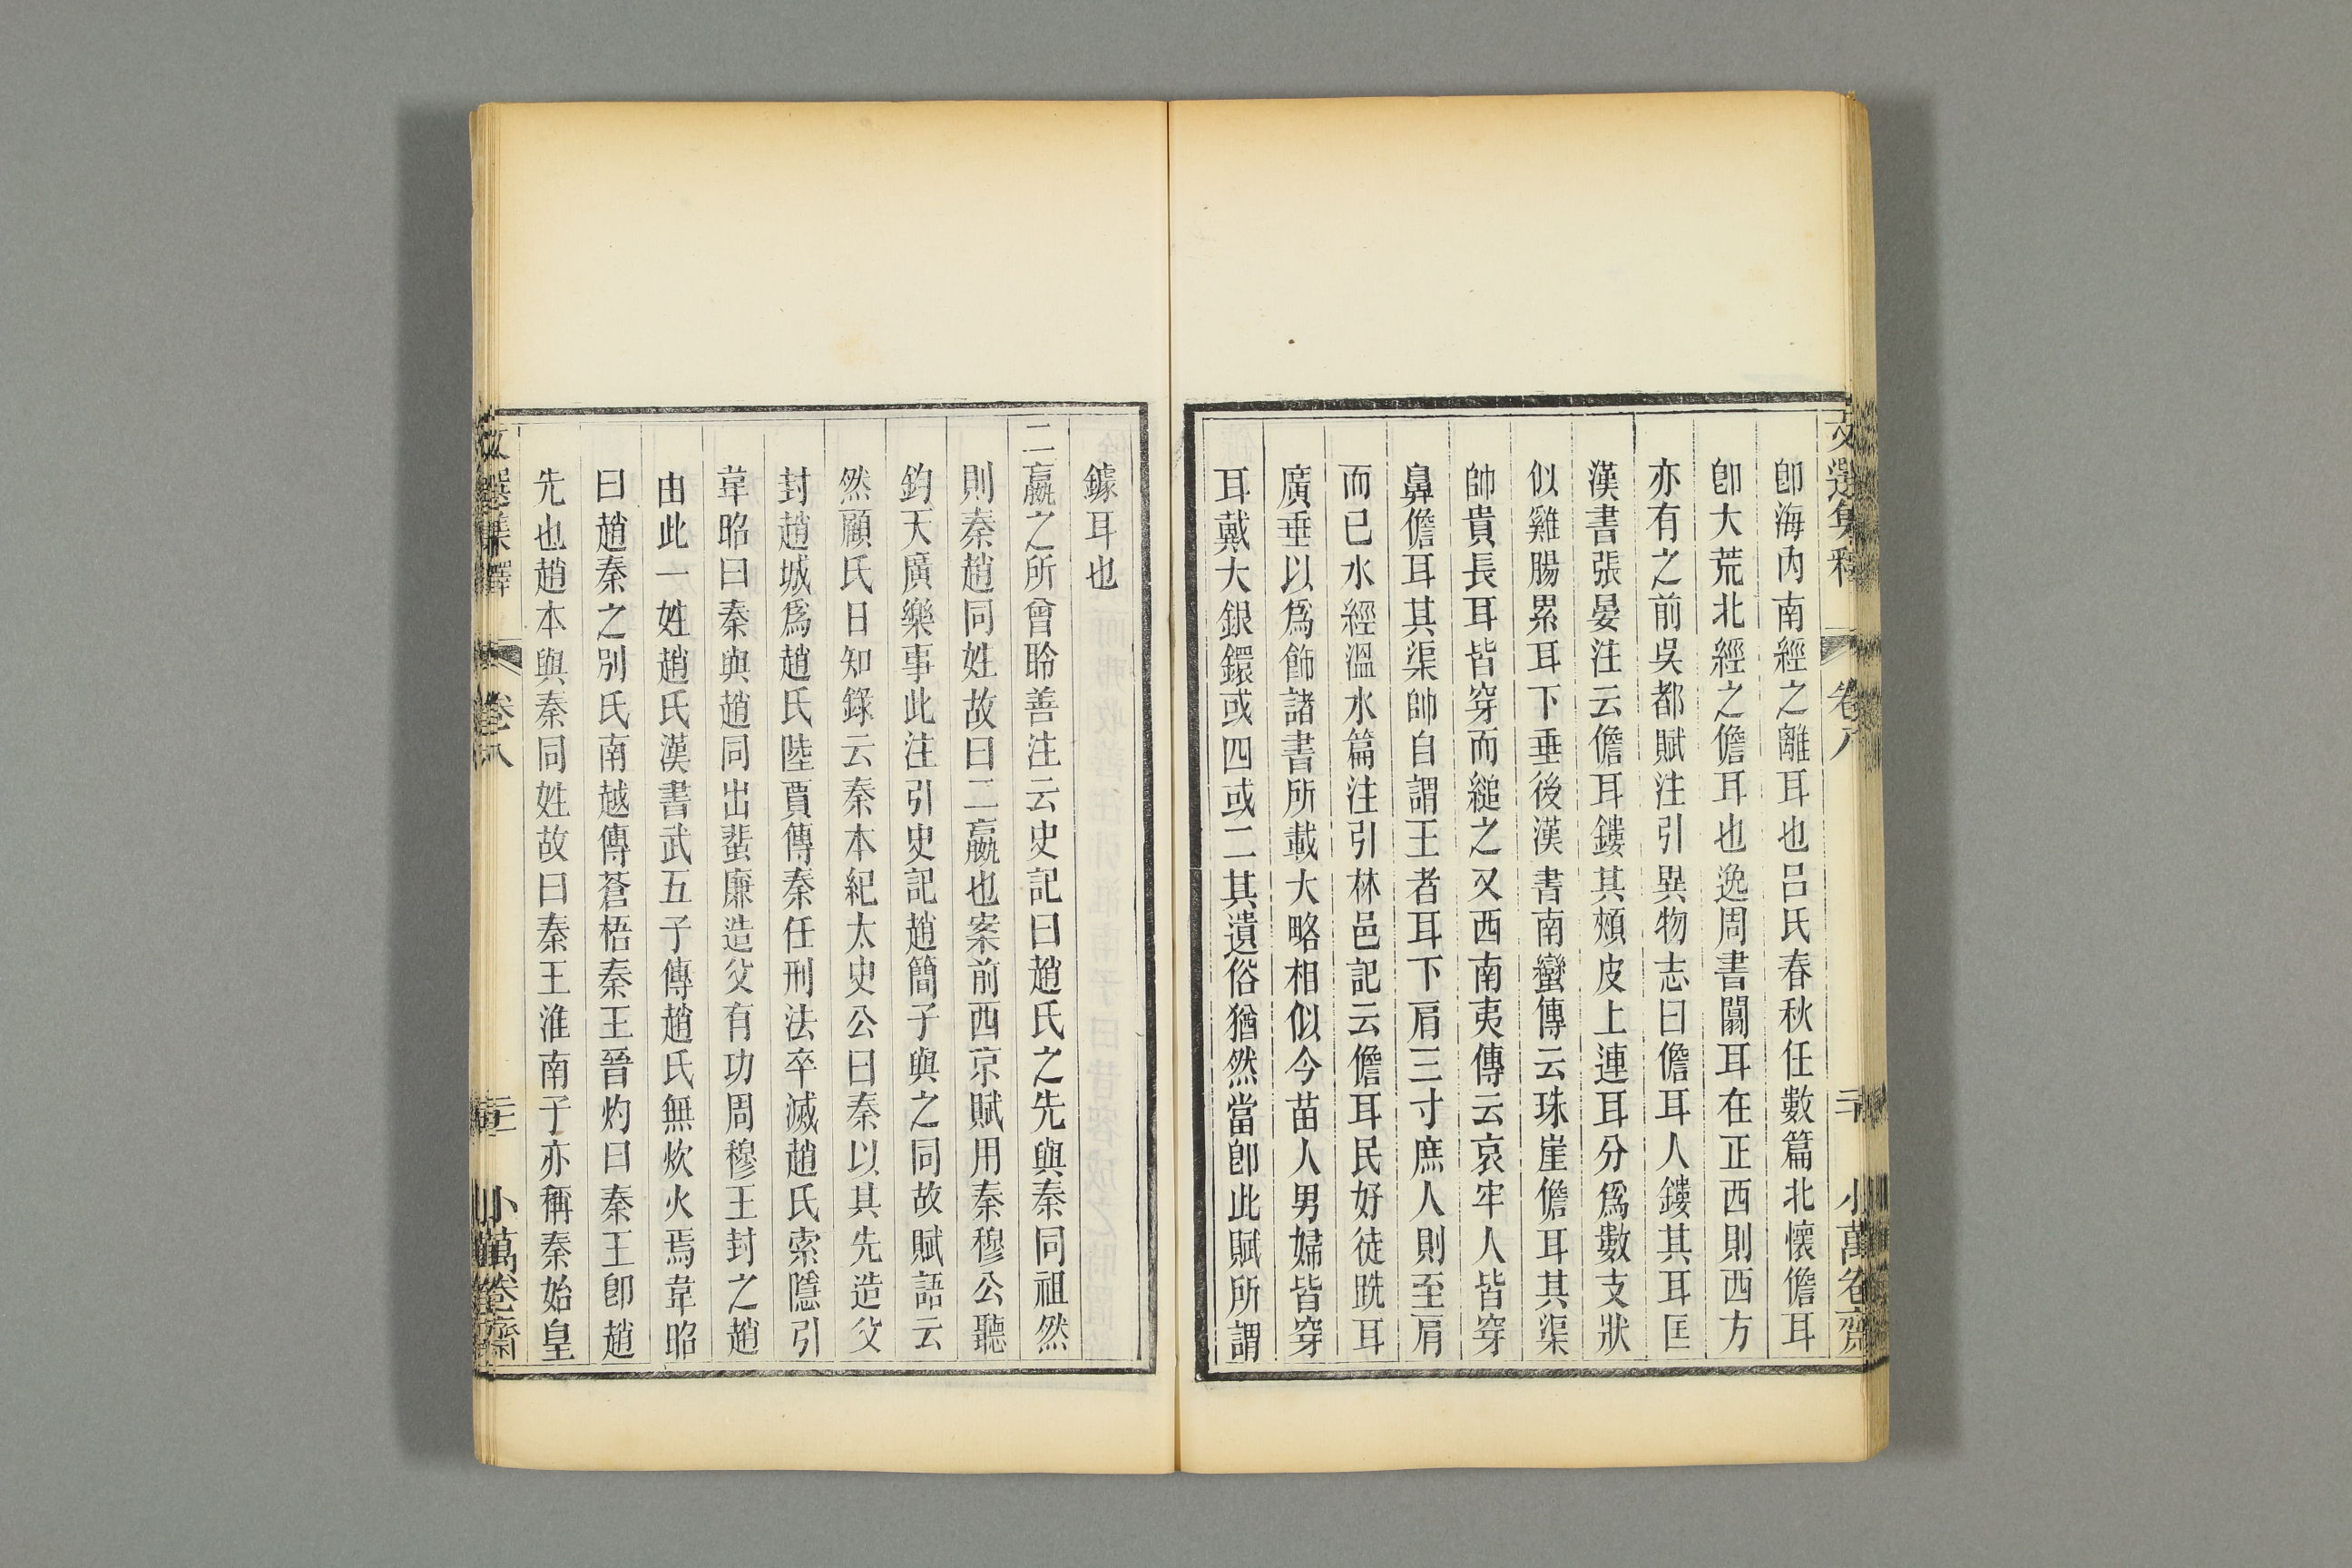 文選集釋 卷八 二十 小萬卷齋
卽海內南經之離耳也呂氏春秋任數篇北懷儋耳
卽大荒北經之儋耳也逸周書闟耳在正西則西方
亦有之前吳都賦注引異物志曰儋耳人鏤其耳匡
漢書張晏注云儋耳鏤其頰皮上連耳分爲數支狀
似雞腸累耳下垂後漢書南蠻傳云珠崖儋耳其渠
帥貴長耳皆穿而縋之又西南夷傳云哀牢人皆穿
鼻儋耳其渠帥自謂王者耳下肩三寸庶人則至肩
而已水經溫水篇注引林邑記云儋耳民好徒跣耳
廣垂以爲飾諸書所載大略相似今苗人男婦皆穿
耳戴大銀鐶或四或二其遺俗猶然當卽此賦所謂
鐻耳也
二嬴之所曾聆善注云史記曰趙氏之先與秦同祖然
則秦趙同姓故曰二嬴也案前西京賦用秦穆公聽
鈞天廣樂事此注引史記趙簡子與之同故賦語云
然顧氏日知錄云秦本紀太史公曰秦以其先造父
封趙城爲趙氏陸賈傳秦任刑法卒滅趙氏索隱引
韋昭曰秦與趙同出蜚廉造父有功周穆王封之趙
由此一姓趙氏漢書武五子傳趙氏無炊火焉韋昭
曰趙秦之別氏南越傳蒼梧秦王晉灼曰秦王卽趙
先也趙本與秦同姓故曰秦王淮南子亦稱秦始皇
文選集釋 卷八 小萬卷齋